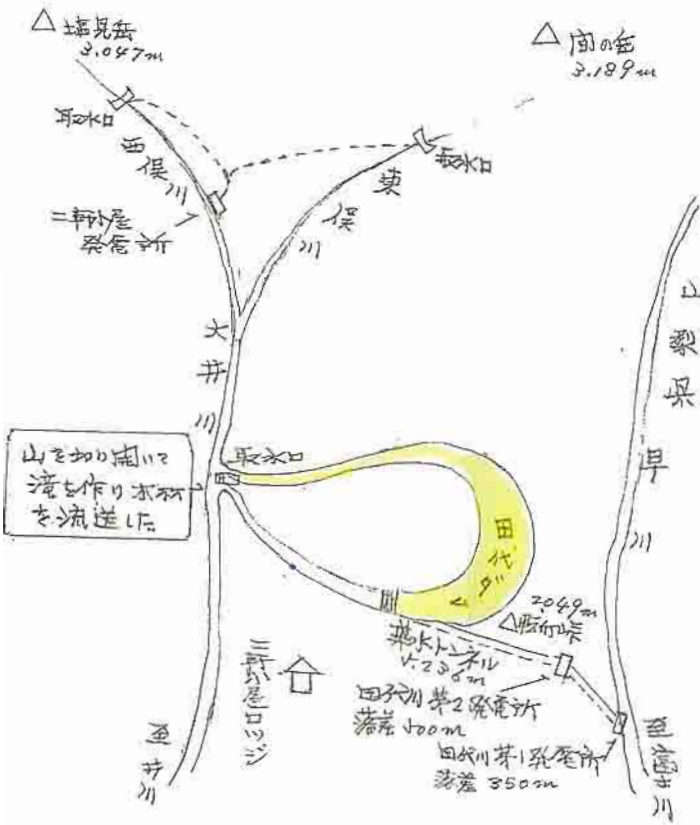 △ 塩見岳
3.047m
△ 間の岳
3.189m
取水口
西俣川
取水口
東俣川
二軒小屋
発電所
大井川
山梨県
早川
山を切り開いて
滝を作り木材
を流送した
取水口
田代ダム
2049m
導水トンネル
田代川第2発電所
落差500m
田代川第1発電所
落差350m
二軒小屋ロッジ
至富士川